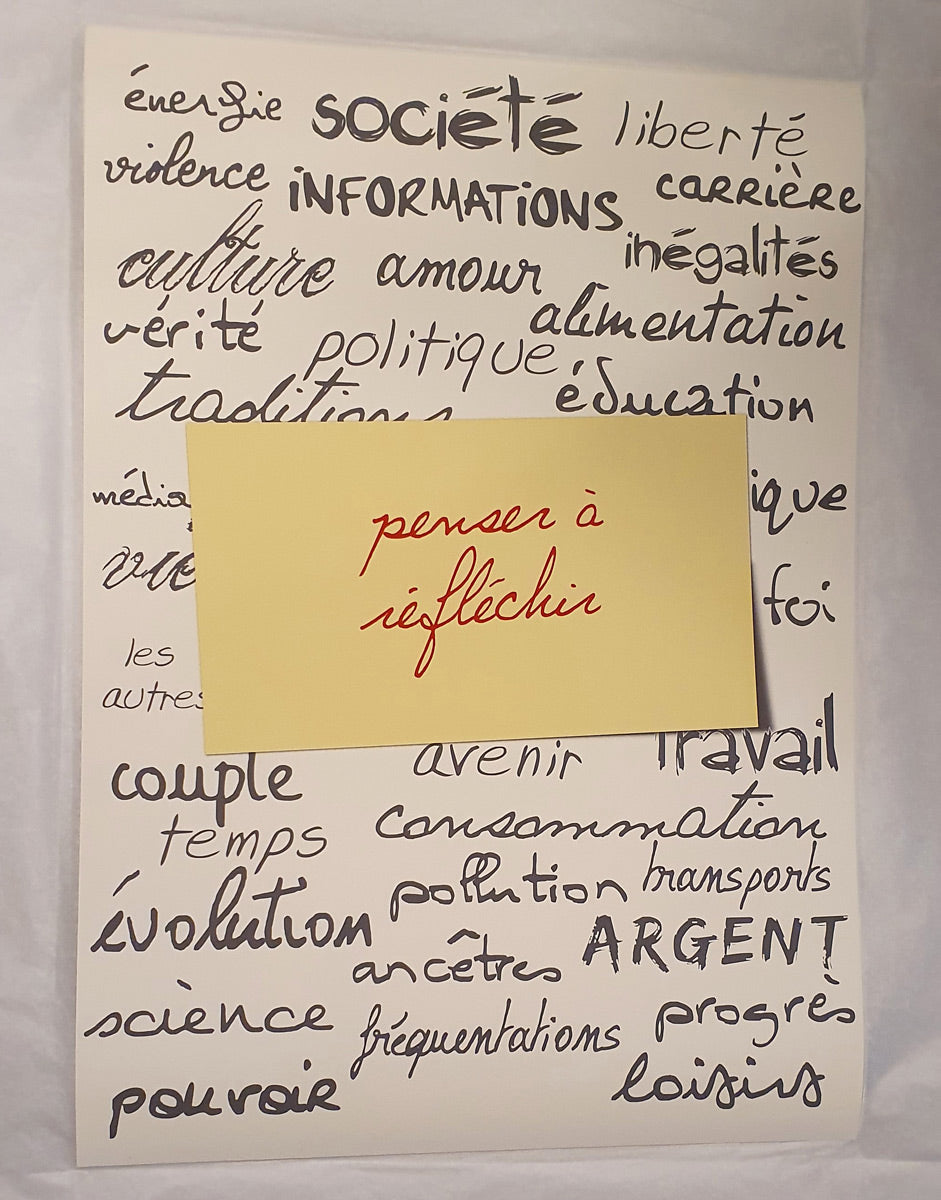 énergie société liberté
violence INFORMATIONS CARRIÈRE
culture amour inégalités
vérité politique alimentation
traditions éducation
média
ique
penser à
réfléchir
vie
foi
les
autres
couple avenir Travail
temps consommation
évolution pollution transports
ancêtres ARGENT
scième fréquentations progrès
pouvoir loisirs